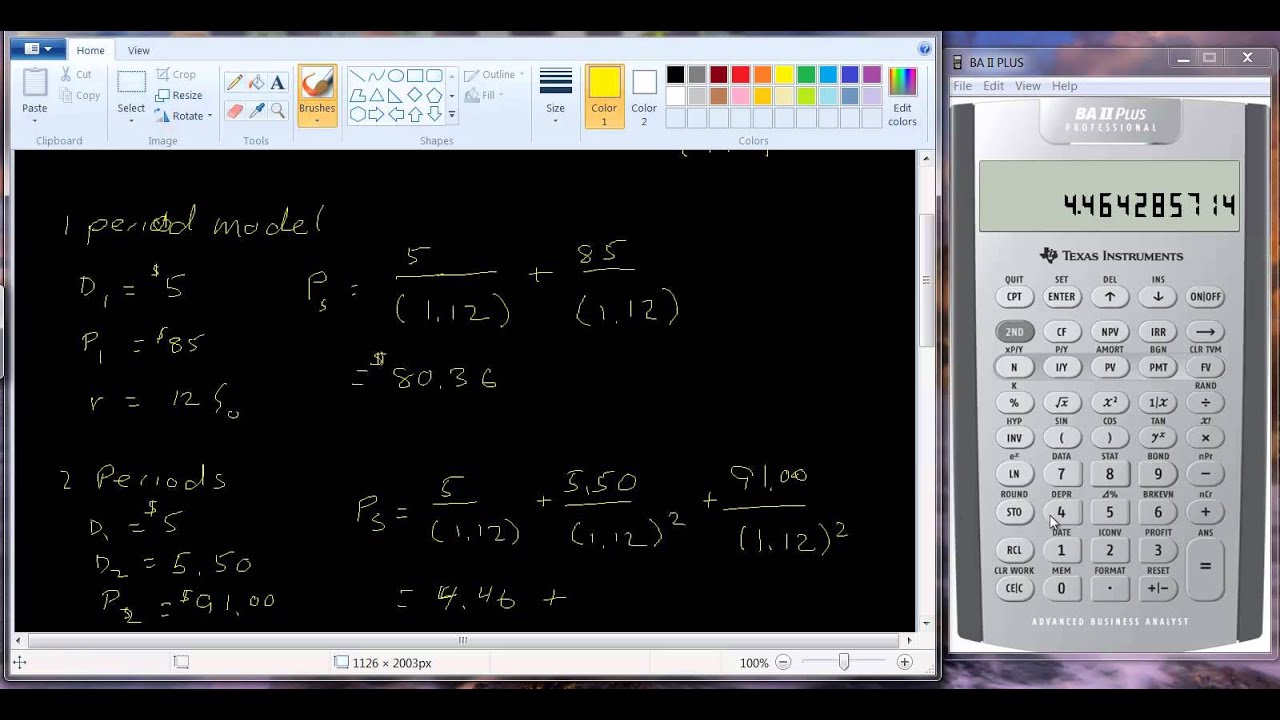 Home View
Cut
Copy
Paste
Clipboard
Crop
Resize
Rotate
Select
Image
A
Tools
Brushes
Outline
Fill
Shapes
Size
Color 1
Color 2
Colors
Edit colors
1 period model
D1 = $5
P1 = $85
r = 12%
Ps = 5/(1.12) + 85/(1.12)
= $80.36
2 Periods
D1 = $5
D2 = 5.50
P2 = $91.00
Ps = 5/(1.12) + 5.50/(1.12)² + 91.00/(1.12)²
= 4.46 +
1126 × 2003px
100%
BA II PLUS
File Edit View Help
BA II PLUS
PROFESSIONAL
4.464285714
TEXAS INSTRUMENTS
QUIT SET DEL INS
CPT ENTER ↑ ↓ ON|OFF
2ND CF NPV IRR →
xP/Y P/Y AMORT BGN CLR TVM
N I/Y PV PMT FV
K RAND
% √x x² 1/x ÷
HYP SIN COS TAN x!
INV ( ) yˣ ×
eˣ DATA STAT BOND nPr
LN 7 8 9 −
ROUND DEPR Δ% BRKEVN nCr
STO 4 5 6 +
DATE ICONV PROFIT ANS
RCL 1 2 3 =
CLR WORK MEM FORMAT RESET
CE|C 0 . +|−
ADVANCED BUSINESS ANALYST